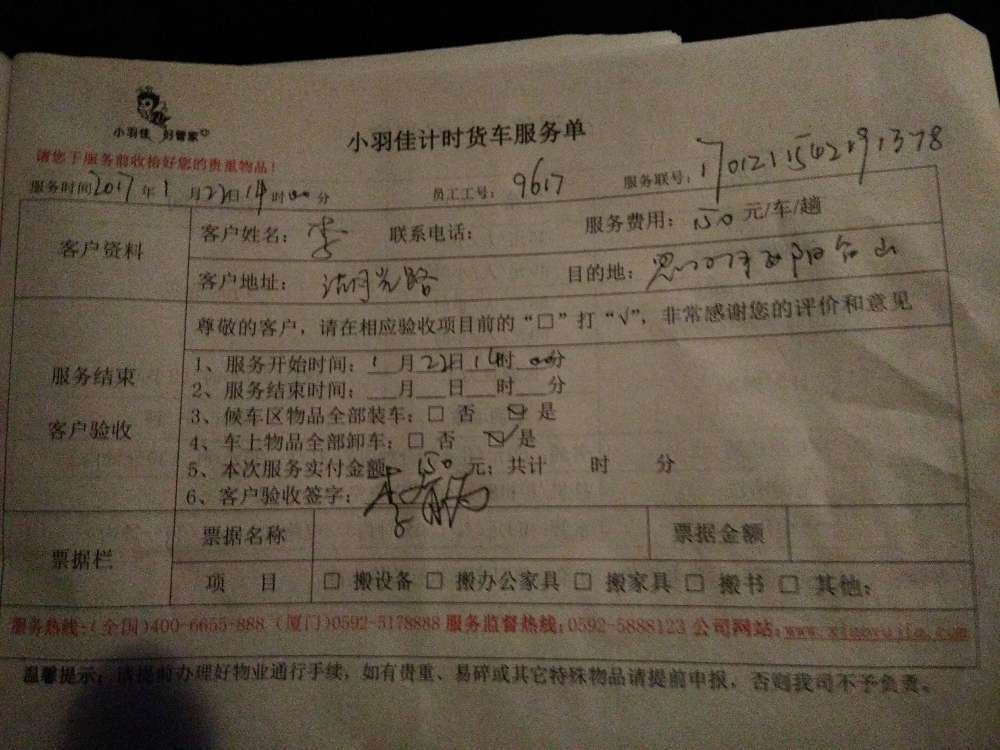 小羽佳 好管家
小羽佳计时货车服务单
请您于服务前收拾好您的贵重物品!
服务时间2017年1月22日14时00分 员工工号: 9617 服务联号: 1701211542191378
客户资料 客户姓名: 李 联系电话: 服务费用: 150元/车/趟
客户地址: 目的地:
服务结束
客户验收
尊敬的客户,请在相应验收项目前的“□”打“√”,非常感谢您的评价和意见
1、服务开始时间: 1月22日14时00分
2、服务结束时间: 月 日 时 分
3、候车区物品全部装车: □ 否 ☑ 是
4、车上物品全部卸车: □ 否 ☑ 是
5、本次服务实付金额: 150元;共计 时 分
6、客户验收签字:
票据栏 票据名称 票据金额
项 目 □ 搬设备 □ 搬办公家具 □ 搬家具 □ 搬书 □ 其他:
服务热线:(全国)400-6655-888 (厦门)0592-5178888 服务监督热线:0592-5888123 公司网站:www.xiaoyujia.com
温馨提示: 请提前办理好物业通行手续,如有贵重、易碎或其它特殊物品请提前申报,否则我司不予负责。